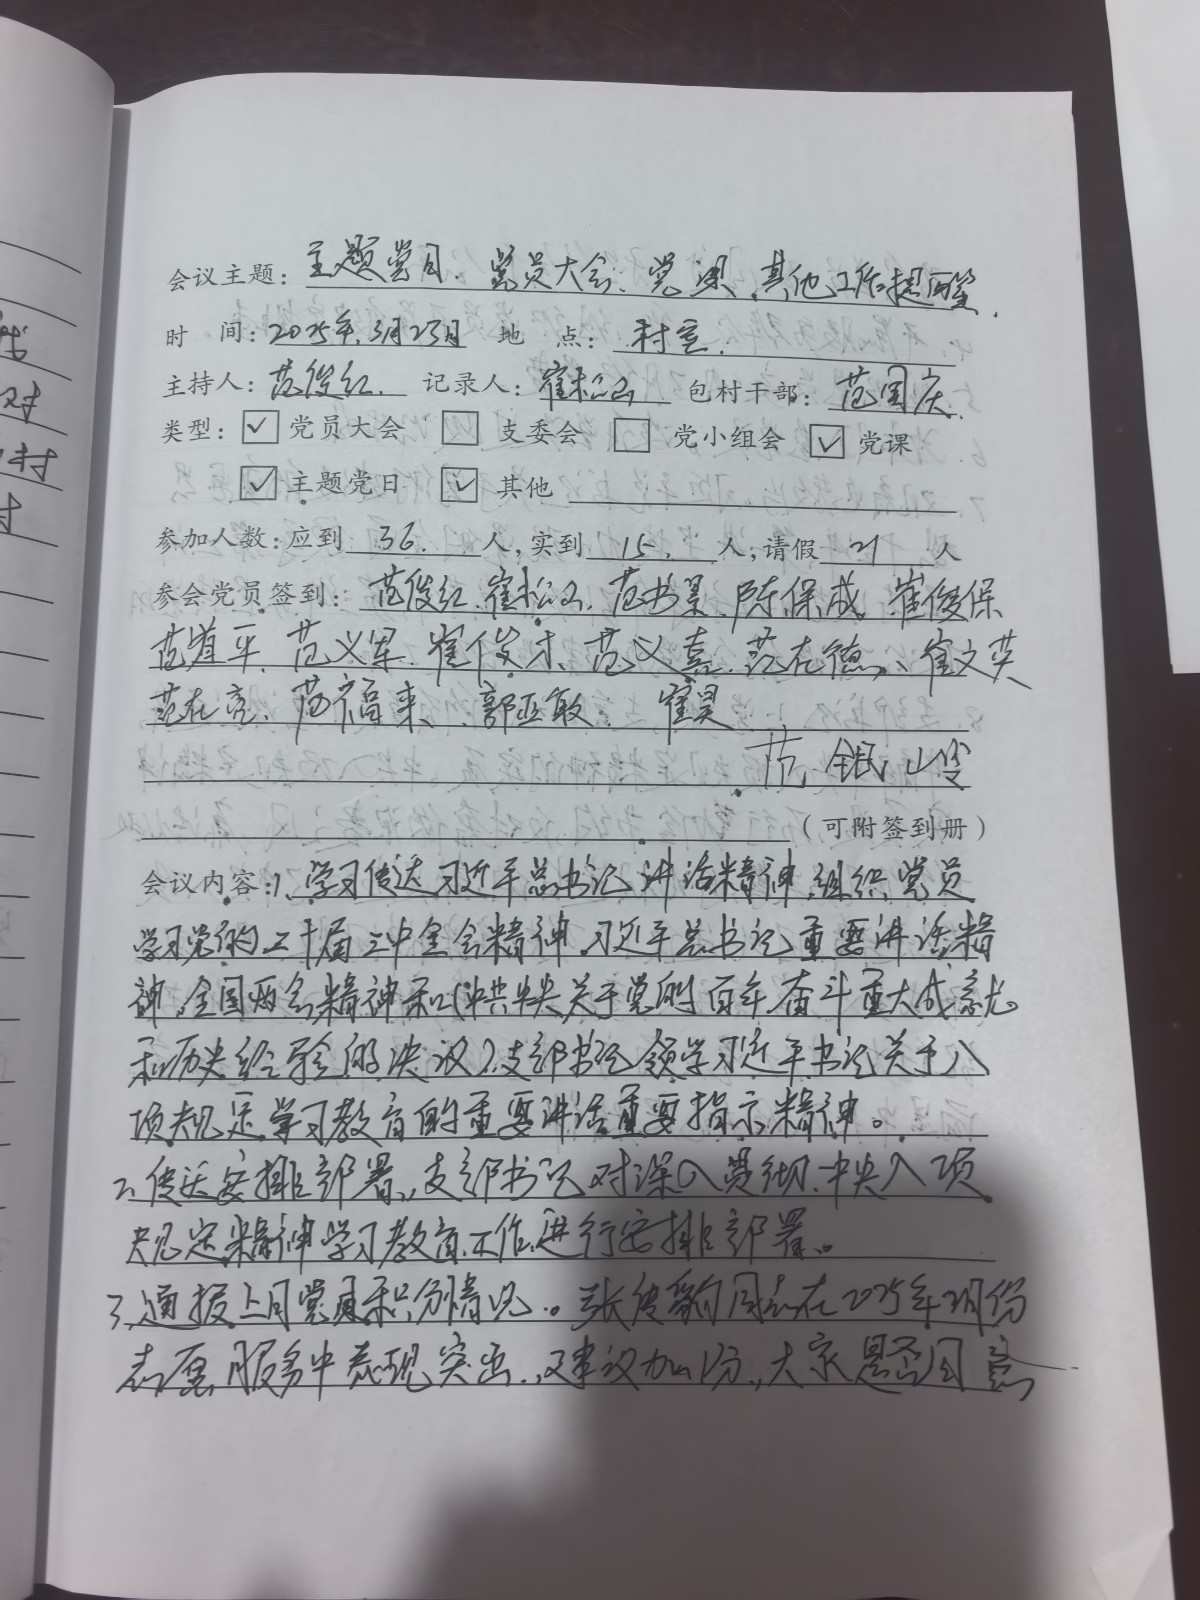 会议主题：主题党日、党员大会、党课、其他工作提醒
时 间：2025年3月23日 地 点：村室
主持人：范俊红 记录人：崔松 包村干部：范国庆
类型：☑党员大会 □支委会 □党小组会 ☑党课
☑主题党日 ☑其他
参加人数：应到36人，实到15人，请假21人
参会党员签到：范俊红、崔松、范书景、陈保成、崔俊保
范道平、范义军、崔俊才、范义嘉、范在德、崔文英
范在亮、范福来、郭亚敏 崔昊
范银山
（可附签到册）
会议内容：1、学习传达习近平总书记讲话精神，组织党员
学习党的二十届三中全会精神、习近平总书记重要讲话精
神、全国两会精神和《中共中央关于党的百年奋斗重大成就
和历史经验的决议》，支部书记领学习近平书记关于八
项规定学习教育的重要讲话重要指示精神。
2、传达安排部署，支部书记对深入贯彻中央八项
规定精神学习教育工作进行安排部署。
3、通报上月党员积分情况。张俊豹同志在2025年2月份
志愿服务中表现突出，建议加1分，大家是否同意
对
村